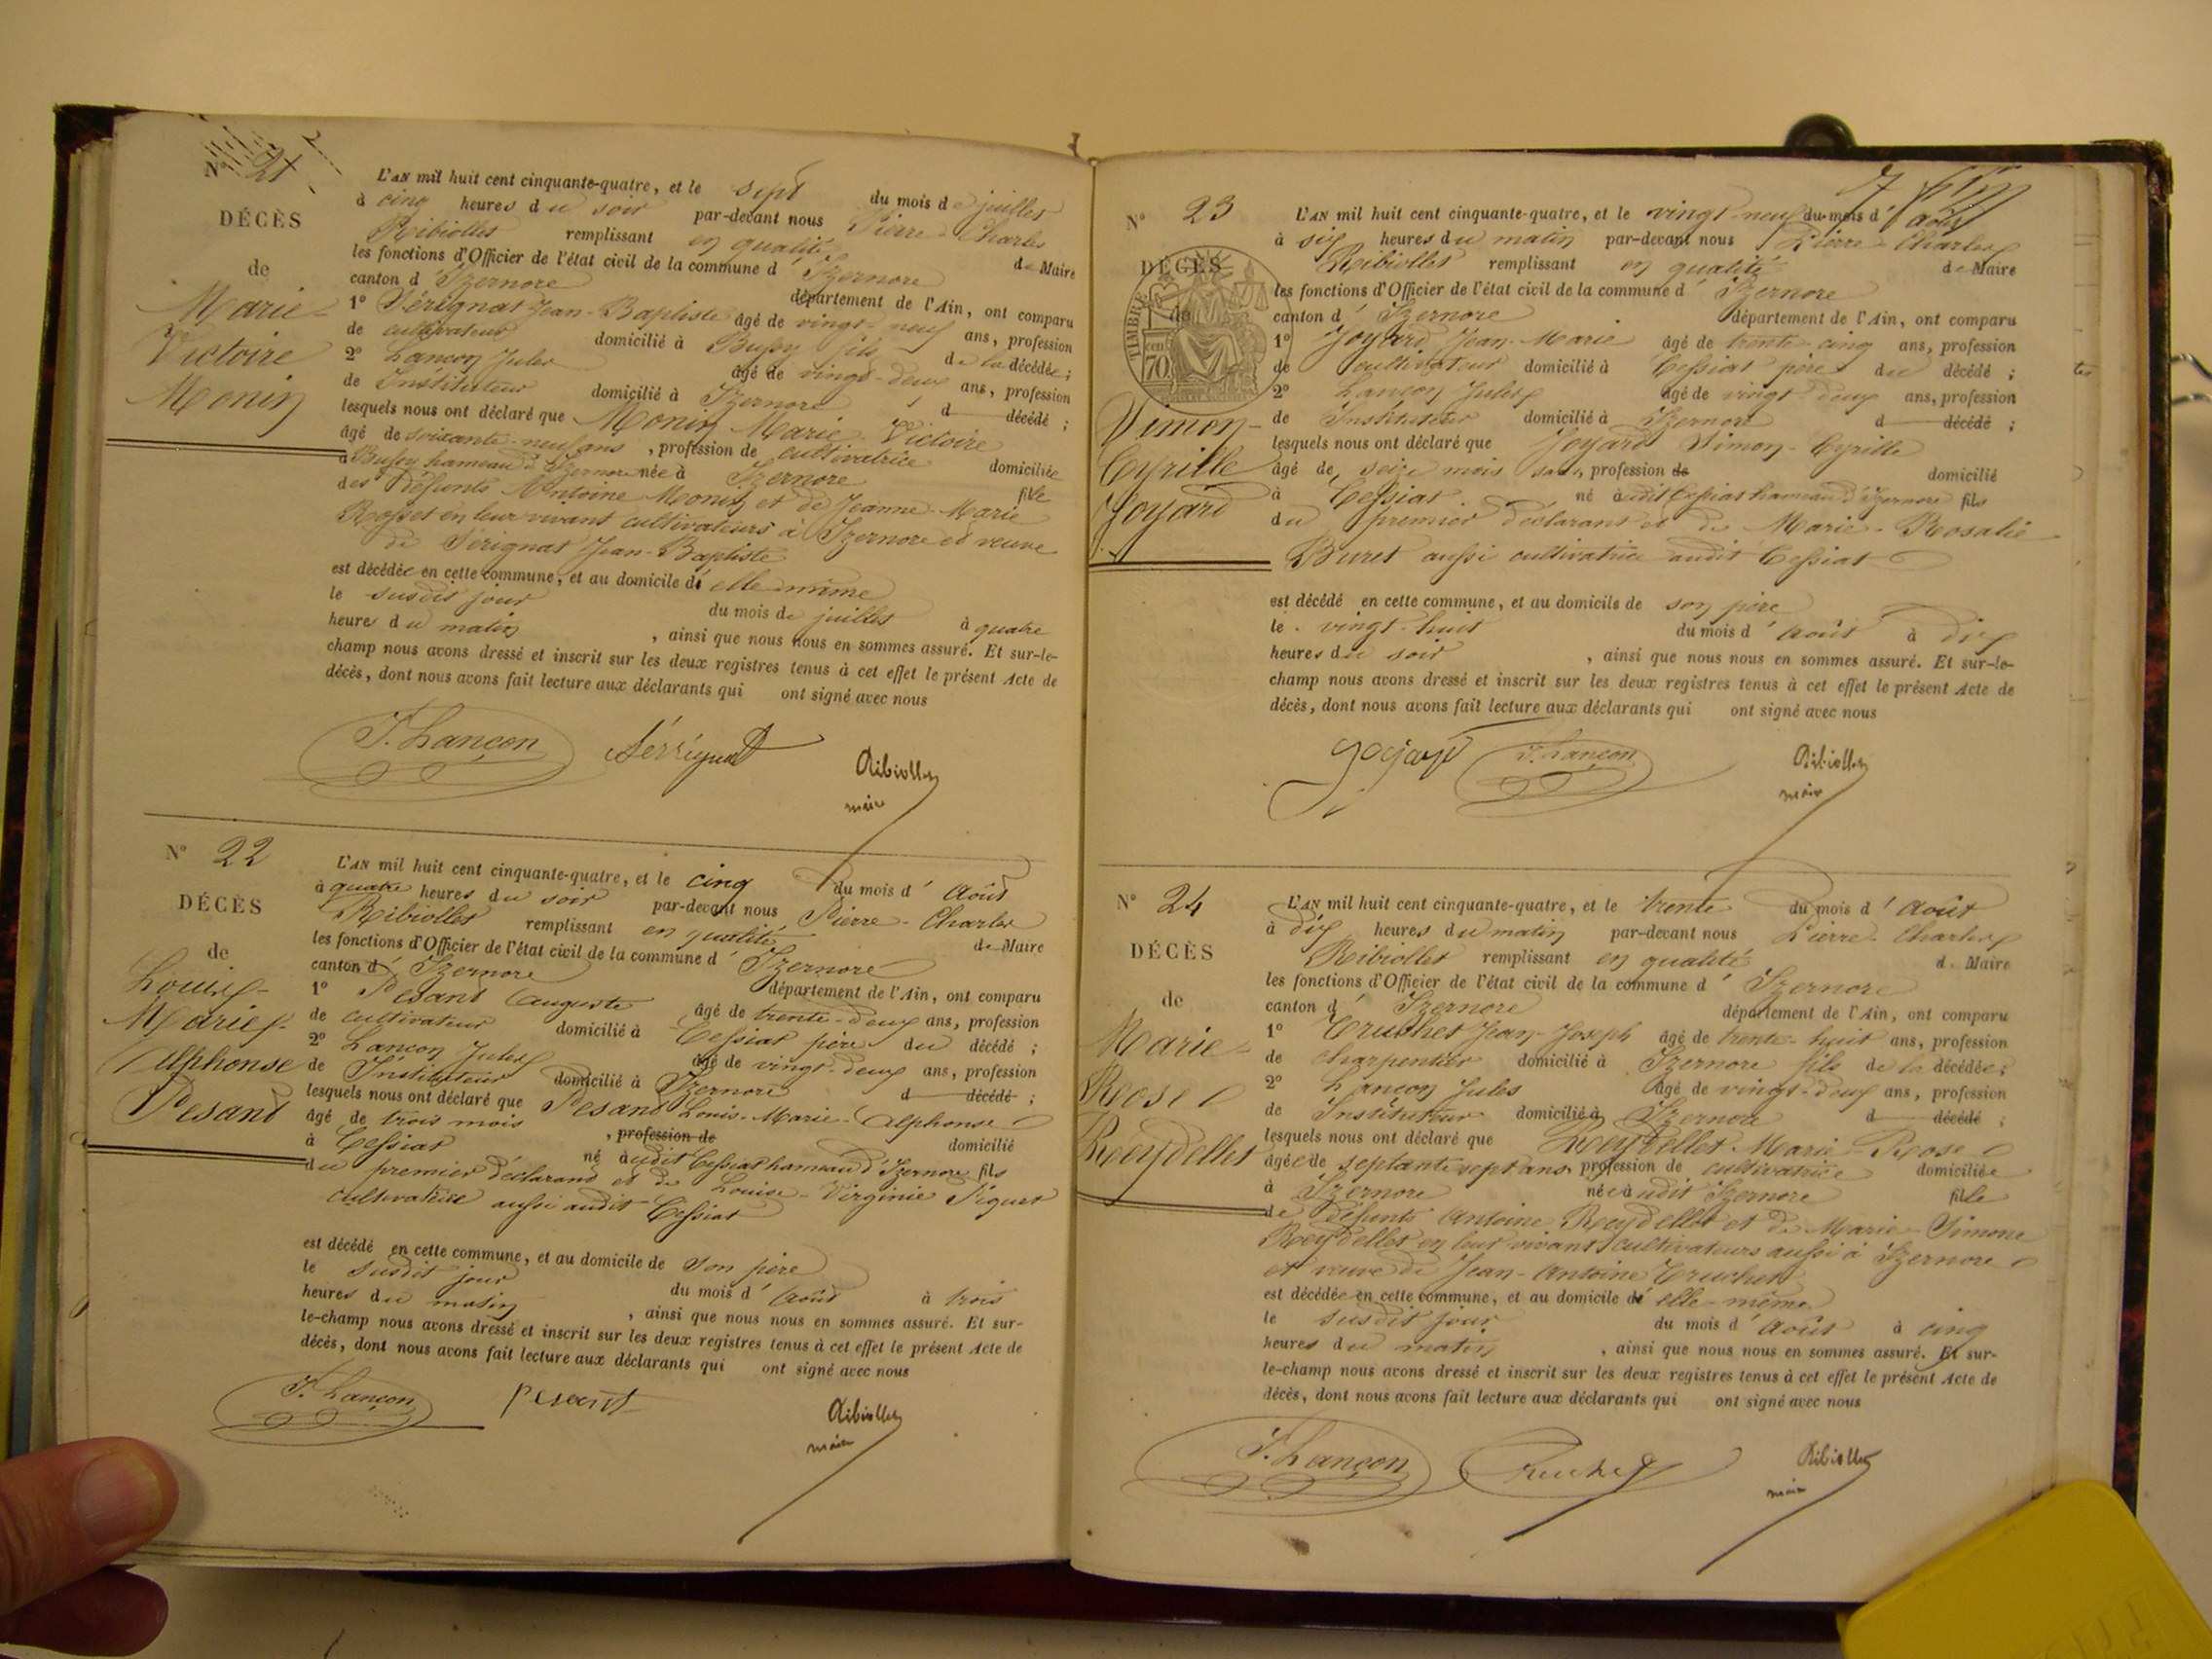 N° 21
DÉCÈS
de
Marie-
Victoire
Monin
L'AN mil huit cent cinquante-quatre, et le sept du mois de juillet
à cinq heures du soir par-devant nous Pierre-Charles
Ribiollet remplissant en qualité de Maire
les fonctions d'Officier de l'état civil de la commune d'Izernore
canton d'Izernore département de l'Ain, ont comparu
1° Sérignat Jean-Baptiste âgé de vingt-neuf ans, profession
de cultivateur domicilié à Bussy fils de la décédée;
2° Lançon Jules âgé de vingt-deux ans, profession
de Instituteur domicilié à Izernore d décédé ;
lesquels nous ont déclaré que Monin Marie Victoire
âgé de soixante-neuf ans, profession de cultivatrice domiciliée
à Bussy hameau d'Izernore née à Izernore fille
des défunts Antoine Monin et de Jeanne-Marie
Rosset en leur vivant cultivateurs à Izernore et veuve
de Serignat Jean-Baptiste
est décédée en cette commune, et au domicile d'elle même
le susdit jour du mois de juillet à quatre
heures du matin, ainsi que nous nous en sommes assuré. Et sur-le-
champ nous avons dressé et inscrit sur les deux registres tenus à cet effet le présent Acte de
décès, dont nous avons fait lecture aux déclarants qui ont signé avec nous
J. Lançon Sérignat Ribiollet
maire
N° 22
DÉCÈS
de
Louis-
Marie-
Alphonse
Pesant
L'AN mil huit cent cinquante-quatre, et le cinq du mois d'Août
à quatre heures du soir par-devant nous Pierre-Charles
Ribiollet remplissant en qualité de Maire
les fonctions d'Officier de l'état civil de la commune d'Izernore
canton d'Izernore département de l'Ain, ont comparu
1° Pesant Auguste âgé de trente-deux ans, profession
de cultivateur domicilié à Cessiat père du décédé ;
2° Lançon Jules âgé de vingt-deux ans, profession
de Instituteur domicilié à Izernore d décédé ;
lesquels nous ont déclaré que Pesant Louis-Marie-Alphonse
âgé de trois mois, profession de domicilié
à Cessiat né audit Cessiat hameau d'Izernore fils
du premier déclarant et de Louise-Virginie Piquet
cultivatrice aussi audit Cessiat
est décédé en cette commune, et au domicile de son père
le susdit jour du mois d'Août à trois
heures du matin, ainsi que nous nous en sommes assuré. Et sur-
le-champ nous avons dressé et inscrit sur les deux registres tenus à cet effet le présent Acte de
décès, dont nous avons fait lecture aux déclarants qui ont signé avec nous
J. Lançon Pesant Ribiollet
maire
N° 23
DÉCÈS
de
TIMBRE
70
Simon-
Cyrille
Joyard
L'AN mil huit cent cinquante-quatre, et le vingt-neuf du mois d'Août
à six heures du matin par-devant nous Pierre-Charles
Ribiollet remplissant en qualité de Maire
les fonctions d'Officier de l'état civil de la commune d'Izernore
canton d'Izernore département de l'Ain, ont comparu
1° Joyard Jean-Marie âgé de trente-cinq ans, profession
de cultivateur domicilié à Cessiat père du décédé ;
2° Lançon Jules âgé de vingt deux ans, profession
de Instituteur domicilié à Izernore d décédé ;
lesquels nous ont déclaré que Joyard Simon-Cyrille
âgé de seize mois sans, profession de domicilié
à Cessiat né audit Cessiat hameau d'Izernore fils
du premier déclarant et de Marie-Rosalie
Buret aussi cultivatrice audit Cessiat
est décédé en cette commune, et au domicile de son père
le vingt-huit du mois d'Août à dix
heures du soir, ainsi que nous nous en sommes assuré. Et sur-le-
champ nous avons dressé et inscrit sur les deux registres tenus à cet effet le présent Acte de
décès, dont nous avons fait lecture aux déclarants qui ont signé avec nous
Joyard J. Lançon Ribiollet
maire
N° 24
DÉCÈS
de
Marie-
Rose
Reydellet
L'AN mil huit cent cinquante-quatre, et le trente du mois d'Août
à dix heures du matin par-devant nous Pierre-Charles
Ribiollet remplissant en qualité de Maire
les fonctions d'Officier de l'état civil de la commune d'Izernore
canton d'Izernore département de l'Ain, ont comparu
1° Truchet Jean-Joseph âgé de trente-huit ans, profession
de charpentier domicilié à Izernore fils de la décédée;
2° Lançon Jules âgé de vingt-deux ans, profession
de Instituteur domicilié à Izernore d décédé ;
lesquels nous ont déclaré que Reydellet Marie-Rose
âgée de septante sept ans, profession de cultivatrice domiciliée
à Izernore née audit Izernore fille
de défunts Antoine Reydellet et de Marie-Simone
Reydellet en leur vivant cultivateurs aussi à Izernore
et veuve de Jean-Antoine Truchet
est décédée en cette commune, et au domicile d'elle-même
le susdit jour du mois d'Août à cinq
heures du matin, ainsi que nous nous en sommes assuré. Et sur-
le-champ nous avons dressé et inscrit sur les deux registres tenus à cet effet le présent Acte de
décès, dont nous avons fait lecture aux déclarants qui ont signé avec nous
J. Lançon Truchet Ribiollet
maire